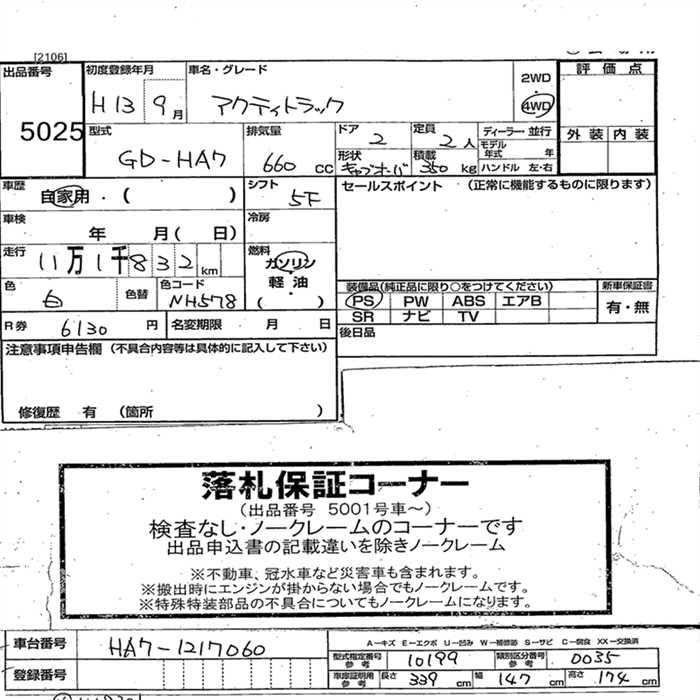 [2106]
出品番号 初度登録年月 車名・グレード 2WD 評価点
H13 9月 アクティトラック 4WD
5025 型式 排気量 ドア 定員 ディーラー・並行 外装 内装
GD-HA7 660cc 2 2人 モデル年式 年
形状 キャブオーバ 積載 350kg ハンドル 左・右
車歴 自家用・( ) シフト 5F セールスポイント (正常に機能するものに限ります)
車検 年 月( 日) 冷房
走行 11万1千832km 燃料 ガソリン 軽・油 ( )
色 白 色替 色コード NH578 装備品(純正品に限り○をつけてください) 新車保証書
PS PW ABS エアB 有・無
SR ナビ TV
R券 6130円 名変期限 月 日 後日品
注意事項申告欄 (不具合内容等は具体的に記入して下さい)
修復歴 有 (箇所 )
落札保証コーナー
(出品番号 5001号車~)
検査なし・ノークレームのコーナーです
出品申込書の記載違いを除きノークレーム
※不動車、冠水車など災害車も含まれます。
※搬出時にエンジンが掛からない場合でもノークレームです。
※特殊特装部品の不具合についてもノークレームになります。
車台番号 HA7-1217060 A-キズ E-エクボ U-凹み W-補修跡 S-サビ C-腐食 XX-交換済
型式指定番号 参考 10199 類別区分番号 参考 0035
登録番号 車庫証明用 参考 長さ 339cm 幅 147cm 高さ 174cm